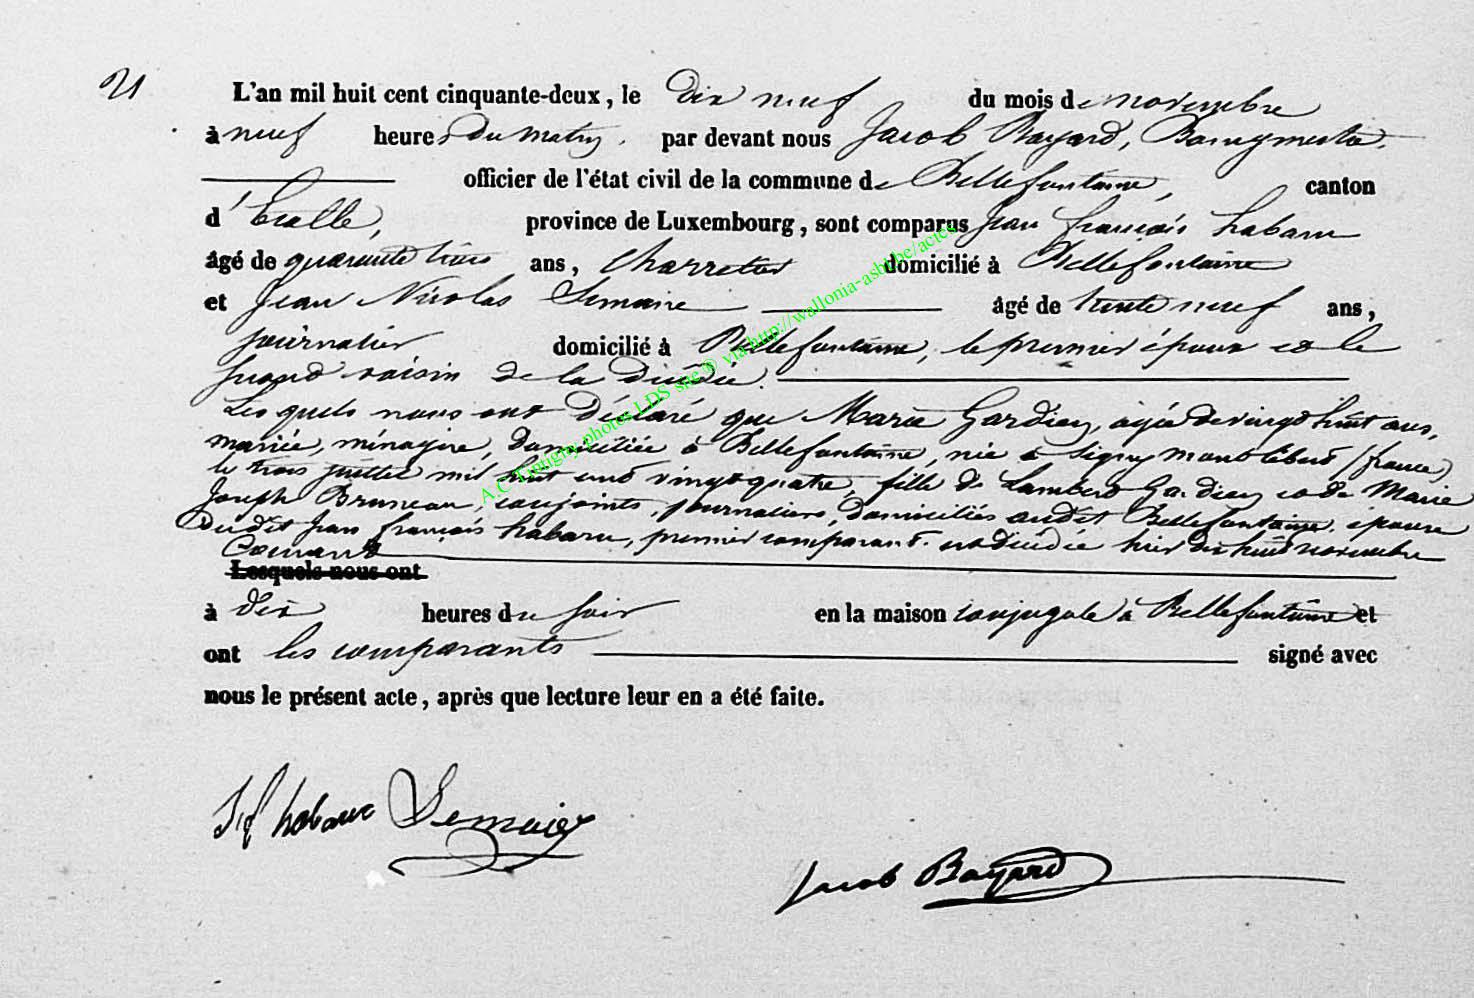 21
L'an mil huit cent cinquante-deux, le dix neuf du mois de novembre
à neuf heures du matin, par devant nous Jacob Bayard, Bourgmestre,
officier de l'état civil de la commune de Bellefontaine, canton
d'Etalle, province de Luxembourg, sont comparus Jean François habaru
âgé de quarante trois ans, Charretier domicilié à Bellefontaine
et Jean Nicolas Lemaire âgé de trente neuf ans,
journalier domicilié à Bellefontaine, le premier époux et le
second voisin de la décédée.
Les quels nous ont déclaré que Marie Gardien, agée de vingt huit ans,
mariée, ménagère, domiciliée à Bellefontaine, née à Signy montlibert (france)
le trois juillet mil huit cent vingt quatre, fille de Lambert Gardien et de Marie
Joseph Bruneau, conjoints, journaliers, domiciliés audit Bellefontaine, épouse
dudit Jean françois habaru, premier comparant est décédée hier dix huit novembre
Courant
Lesquels nous ont
à dix heures du soir en la maison conjugale à Bellefontaine et
ont les comparants signé avec
nous le présent acte, après que lecture leur en a été faite.
J f habaru Lemaire
Jacob Bayard
A.C Tintigny photos LDS site © via http://wallonia-asbl.be/actes